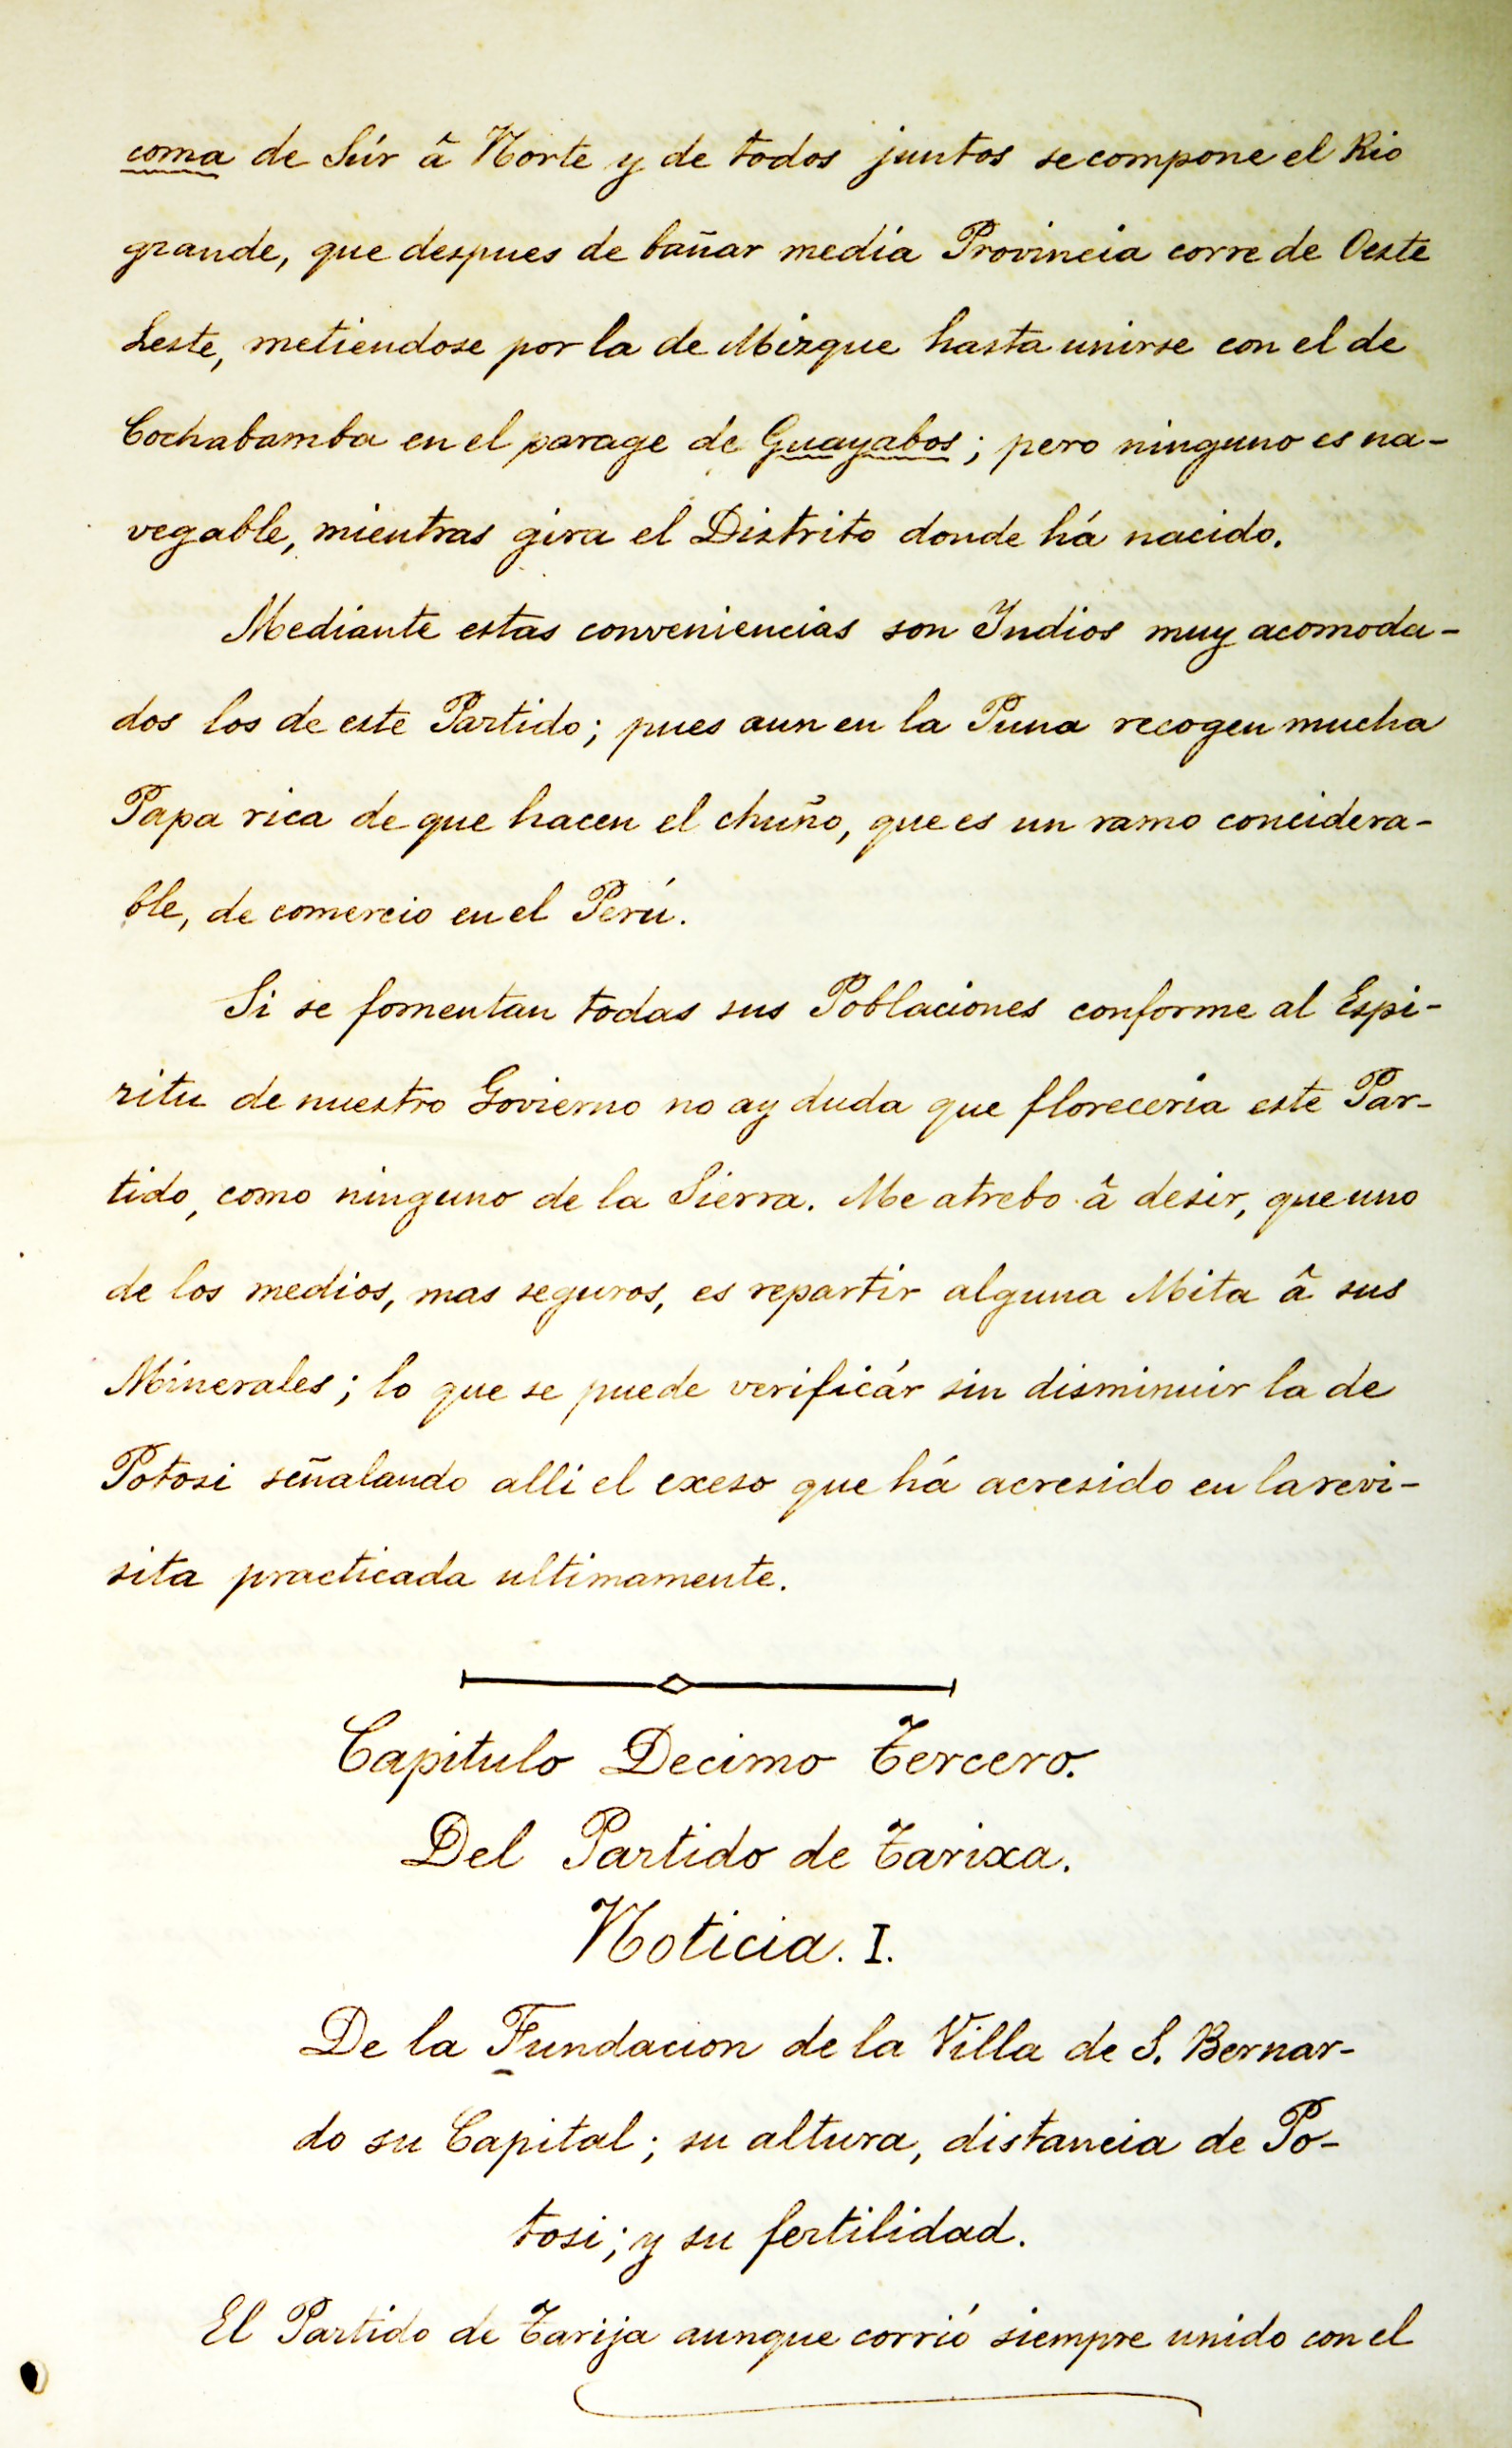 coma de Súr â Norte y de todos juntos se compone el Rio
grande, que despues de bañar media Provincia corre de Oeste
Leste, metiendose por la de Mizque hasta unirse con el de
Cochabamba en el parage de Guayabos; pero ninguno es na-
vegable, mientras gira el Distrito donde há nacido.
Mediante estas conveniencias son Indios muy acomoda-
dos los de este Partido; pues aun en la Puna recogen mucha
Papa rica de que hacen el chuño, que es un ramo concidera-
ble, de comercio en el Perú.
Si se fomentan todas sus Poblaciones conforme al Espi-
ritu de nuestro Govierno no ay duda que floreceria este Par-
tido, como ninguno de la Sierra. Me atrebo â desir, que uno
de los medios, mas seguros, es repartir alguna Mita â sus
Minerales; lo que se puede verificár sin disminuir la de
Potosi señalando alli el exeso que há acresido en la revi-
sita practicada ultimamente.
Capitulo Decimo Tercero.
Del Partido de Tarixa.
Noticia. I.
De la Fundacion de la Villa de S. Bernar-
do su Capital; su altura, distancia de Po-
tosi; y su fertilidad.
El Partido de Tarija aunque corrió siempre unido con el